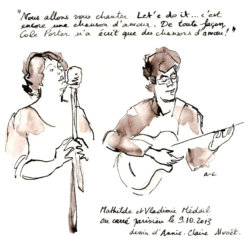 "Nous allons vous chanter Let's do it... c'est
encore une chanson d'amour. De toute façon
Cole Porter n'a écrit que des chansons d'amour!"
a-c
Mathilde et Vladimir Médail
au carré parisien le 9.10.2013
dessin d'Annie-Claire